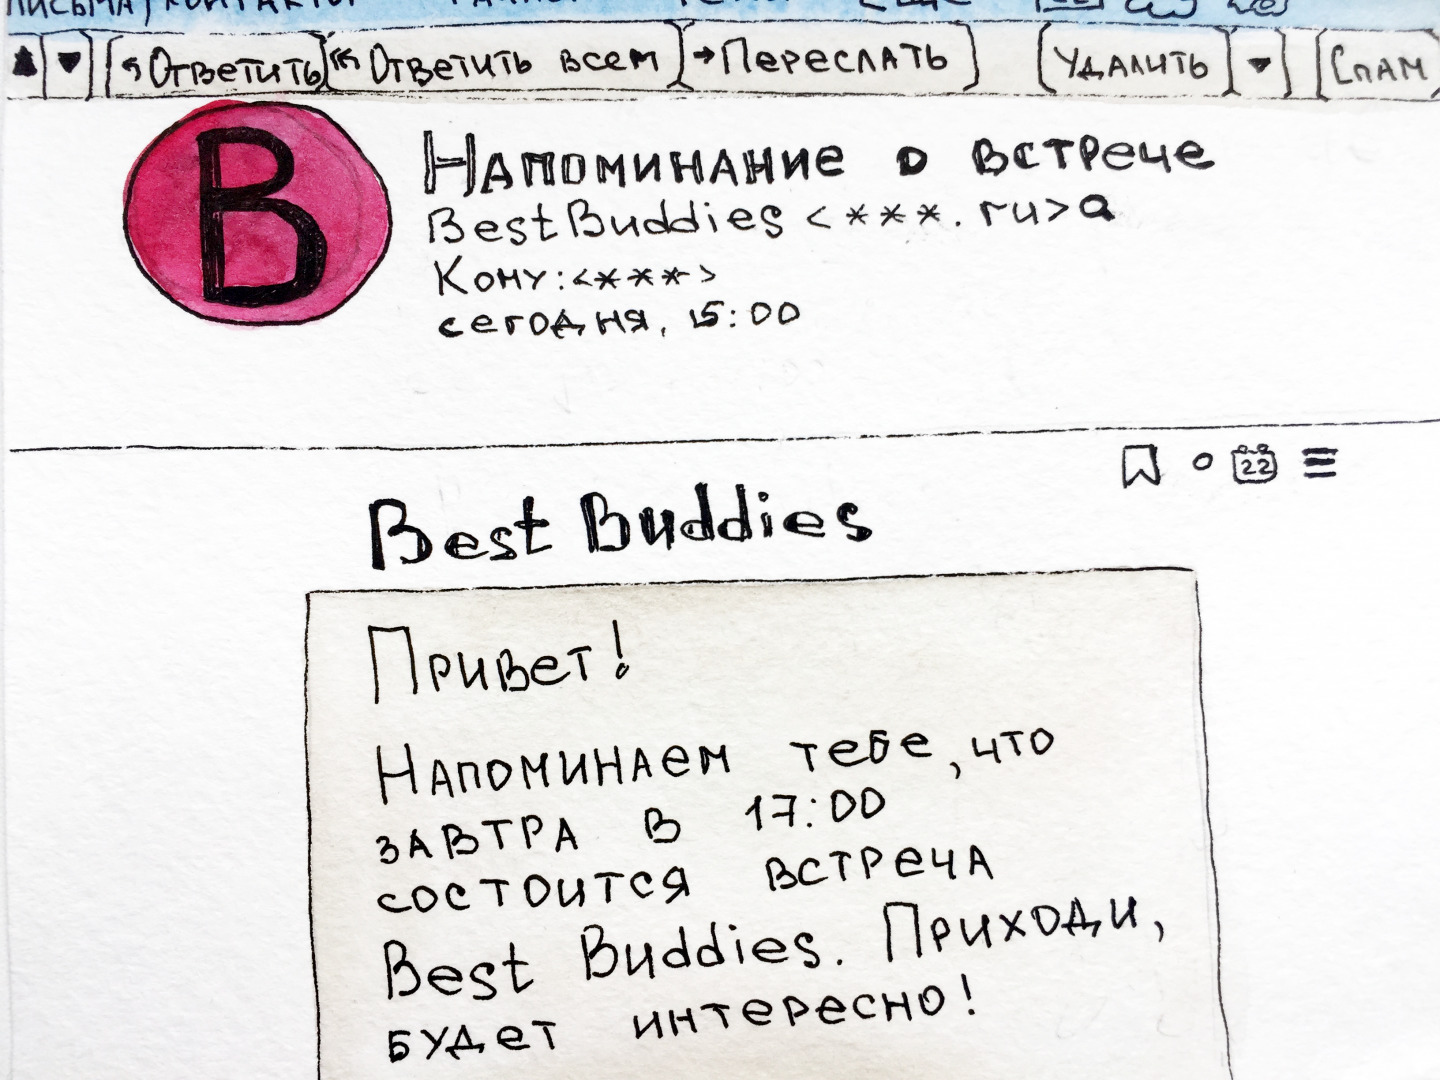 Ответить Ответить всем Переслать Удалить Спам
В
Напоминание о встрече
BestBuddies <***.ru>
Кому:<***>
сегодня, 15:00
22
Best Buddies
Привет!
Напоминаем тебе, что
завтра в 17:00
состоится встреча
Best Buddies. Приходи,
будет интересно!